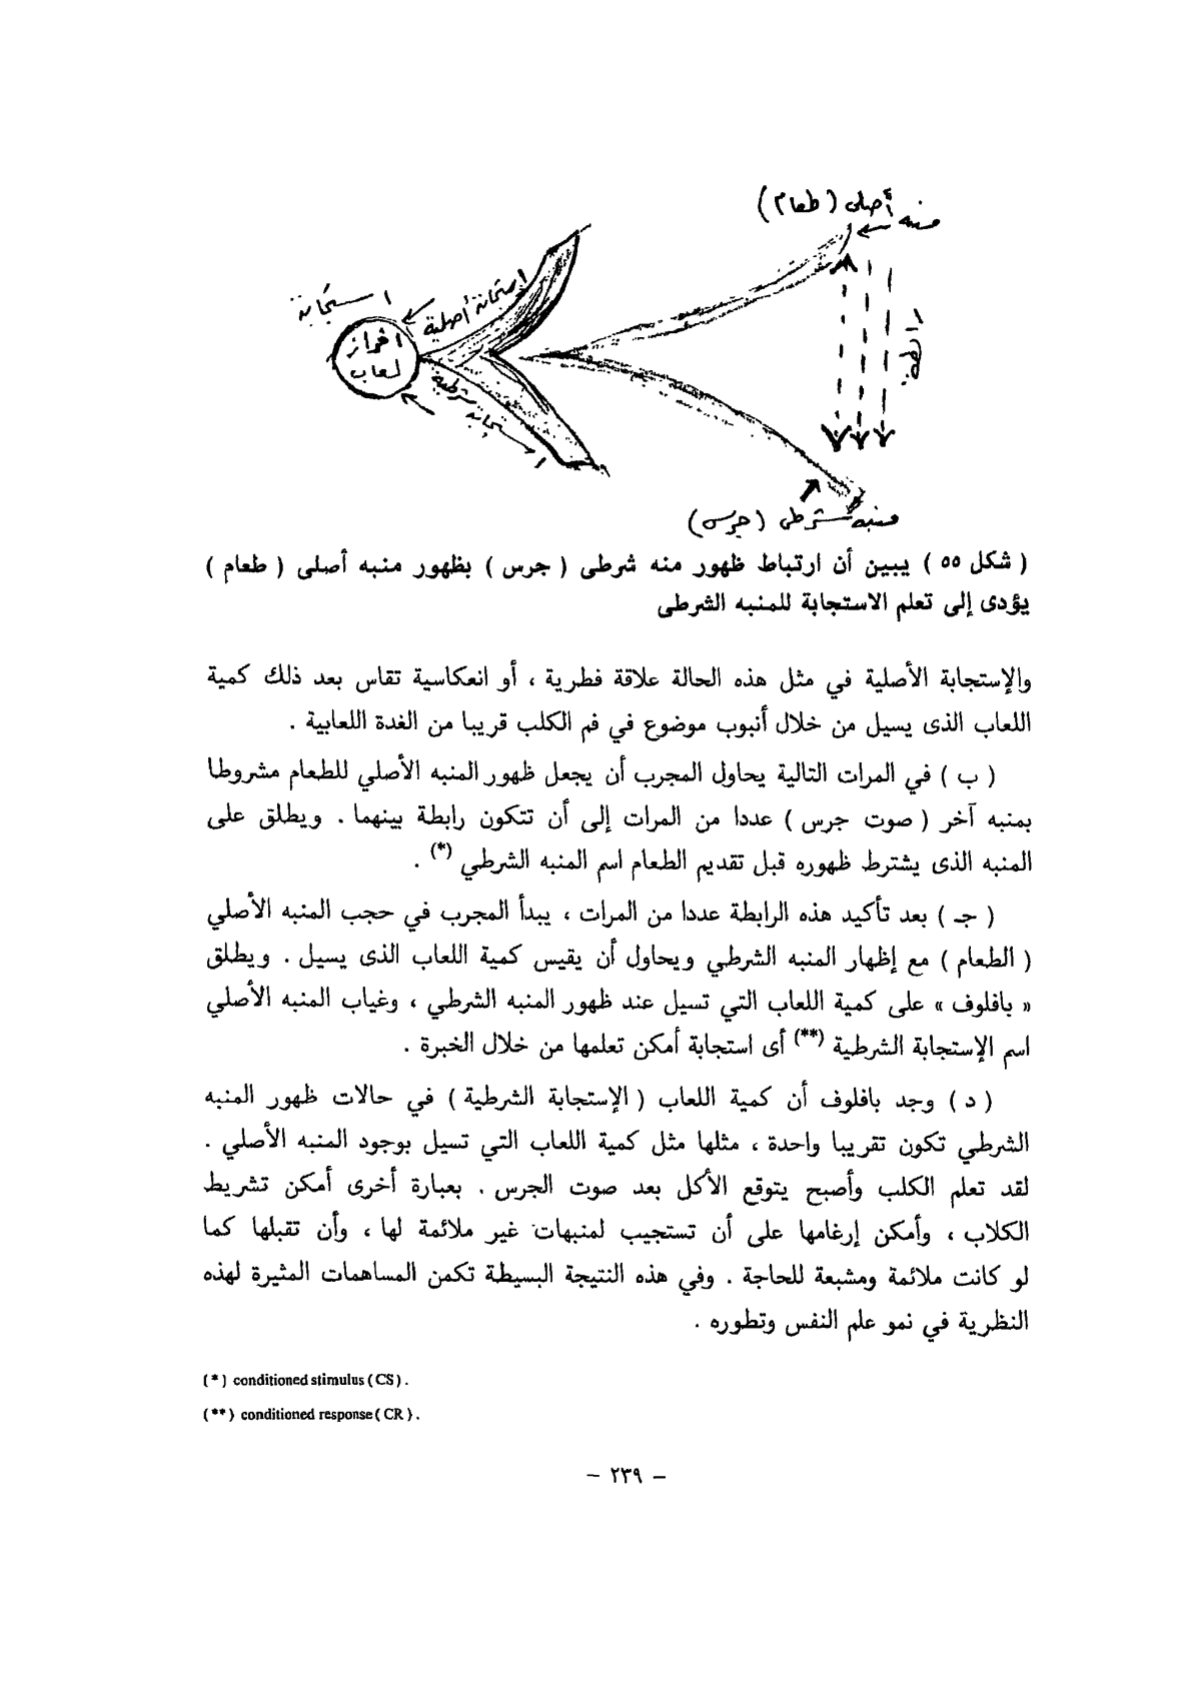 منبه أصلى (طعام)
استجابة
استجابة أصلية
افراز
لعاب
استجابة شرطية
رابطة
منبه شرطى (جرس)
( شكل ٥٥ ) يبين أن ارتباط ظهور منه شرطى ( جرس ) بظهور منبه أصلى ( طعام )
يؤدى إلى تعلم الاستجابة للمنبه الشرطى
والإستجابة الأصلية في مثل هذه الحالة علاقة فطرية ، أو انعكاسية تقاس بعد ذلك كمية
اللعاب الذى يسيل من خلال أنبوب موضوع في فم الكلب قريبا من الغدة اللعابية .
( ب ) في المرات التالية يحاول المجرب أن يجعل ظهور المنبه الأصلي للطعام مشروطا
بمنبه آخر ( صوت جرس ) عددا من المرات إلى أن تتكون رابطة بينهما . ويطلق على
المنبه الذى يشترط ظهوره قبل تقديم الطعام اسم المنبه الشرطي (*) .
( جـ ) بعد تأكيد هذه الرابطة عددا من المرات ، يبدأ المجرب في حجب المنبه الأصلي
( الطعام ) مع إظهار المنبه الشرطي ويحاول أن يقيس كمية اللعاب الذى يسيل . ويطلق
« بافلوف » على كمية اللعاب التي تسيل عند ظهور المنبه الشرطي ، وغياب المنبه الأصلي
اسم الإستجابة الشرطية (**) أى استجابة أمكن تعلمها من خلال الخبرة .
( د ) وجد بافلوف أن كمية اللعاب ( الإستجابة الشرطية ) في حالات ظهور المنبه
الشرطي تكون تقريبا واحدة ، مثلها مثل كمية اللعاب التي تسيل بوجود المنبه الأصلي .
لقد تعلم الكلب وأصبح يتوقع الأكل بعد صوت الجرس . بعبارة أخرى أمكن تشريط
الكلاب ، وأمكن إرغامها على أن تستجيب لمنبهات غير ملائمة لها ، وأن تقبلها كما
لو كانت ملائمة ومشبعة للحاجة . وفي هذه النتيجة البسيطة تكمن المساهمات المثيرة لهذه
النظرية في نمو علم النفس وتطوره .
(*) conditioned stimulus (CS) .
(**) conditioned response (CR) .
– ٢٣٩ –